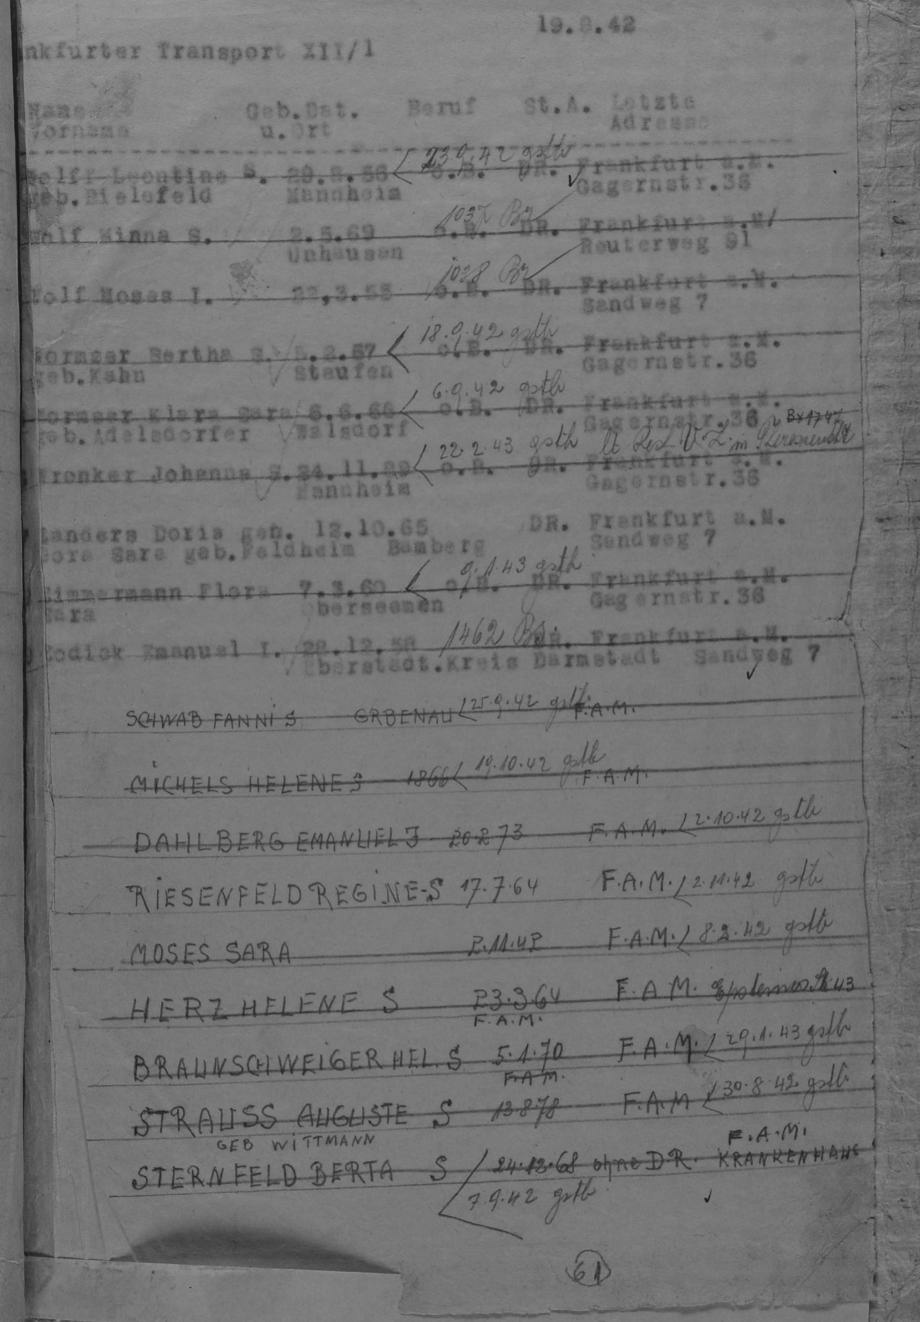 19.8.42
nkfurter Transport XII/1
Name Geb.Dat. Beruf St.A. Letzte
Vorname u.Ort Adresse
olff Leontine S. 29.8.56 23 9.42 gstb o.B. DR. Frankfurt a.M.
geb.Bielefeld Mannheim Gagernstr.36
1037
olf Minna S. 2.5.69 o.B. DR. Frankfurt a.M/
Reuterweg 91
1028
olf Moses I. 22,3.58 o.B. DR. Frankfurt a.M.
Sandweg 7
18.9.42 gstb
ormser Bertha S. 5.2.67 o.B. DR. Frankfurt a.M.
geb.Kahn Staufen Gagernstr.36
6.9.42 gstb
ormser Klara Sara 6.6.66 o.B. DR. Frankfurt a.M.
geb.Adelsdorfer Walsdorf Gagernstr.36
22.2.43 gstb
ronker Johanna S. 24.11. o.B. DR. Frankfurt a.M.
Mannheim Gagernstr.36
anders Doris geb. 12.10.65 DR. Frankfurt a.M.
ora Sara geb.Feldheim Bamberg Sandweg 7
9.1.43 gstb
immermann Flora 7.3.60 o.B. DR. Frankfurt a.M.
ara Oberseemen Gagernstr.36
odick Emanuel I. 28.12.58 1462 DR. Frankfurt a.M.
Eberstadt.Kreis Darmstadt Sandweg 7
SCHWAB FANNI S GRBENAU 25.9.42 gstb F.A.M.
MICHELS HELENE S 1866 19.10.42 gstb F.A.M.
DAHLBERG EMANUEL J 20 2 73 F.A.M. 2.10.42 gstb
RIESENFELD REGINE-S 17.7.64 F.A.M. 2.11.42 gstb
MOSES SARA 2.11.42 F.A.M. 8.2.42 gstb
HERZ HELENE S 23.3.64 F.A.M. 43
F.A.M.
BRAUNSCHWEIGER HEL. S 5.1.70 F.A.M. 29.1.43 gstb
F.A.M.
STRAUSS AUGUSTE S 13 8 78 F.A.M 30.8.42 gstb
GEB WITTMANN F.A.M.
STERNFELD BERTA S 24.12.68 ohne D.R. KRANKENHAUS
7.9.42 gstb
61